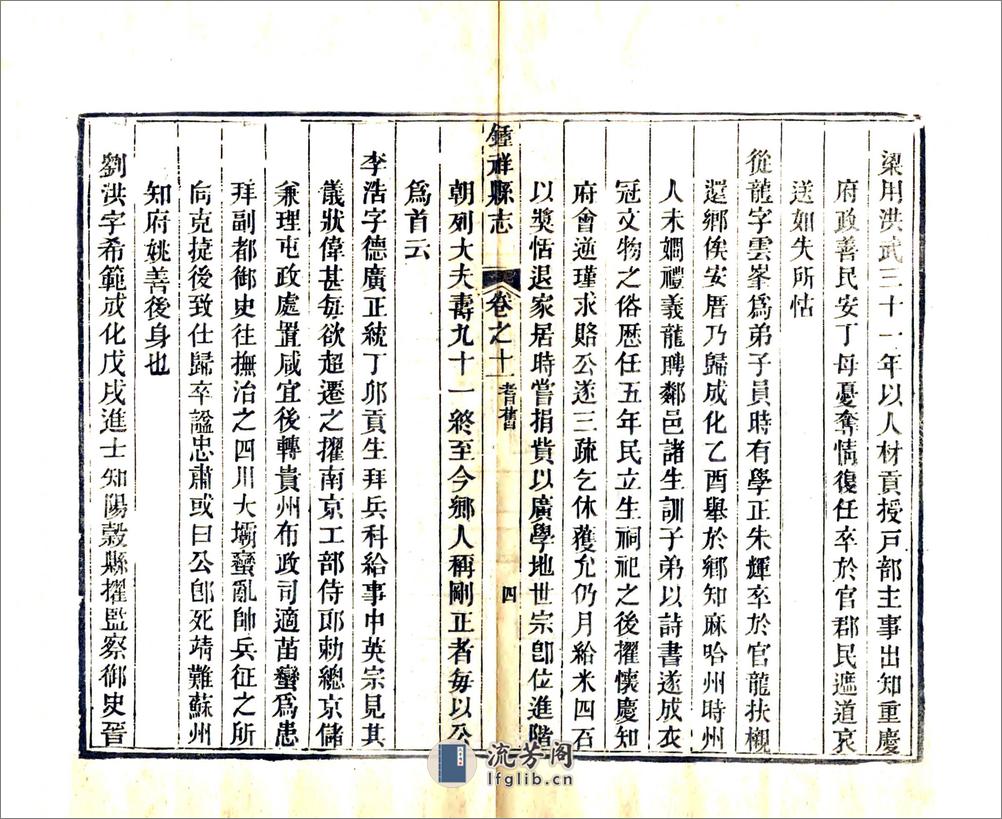 梁用洪武三十一年以人材貢授戸部主事出知重慶
府政善民安丁母憂奪情復任卒於官郡民遮道哀
送如失所怙
從龍字雲峯爲弟子員時有學正朱輝卒於官龍扶櫬
還鄉俟安厝乃歸成化乙酉舉於鄉知麻哈州時州
人未嫺禮義龍聘鄰邑諸生訓子弟以詩書遂成衣
冠文物之俗歷任五年民立生祠祀之後擢懷慶知
府會逆瑾求賂公遂三疏乞休獲允仍月給米四石
以奬恬退家居時嘗捐貲以廣學地世宗卽位進階
鍾祥縣志
卷之十一
耆舊
四
朝列大夫壽九十一終至今鄉人稱剛正者每以公
爲首云
李浩字德廣正統丁卯貢生拜兵科給事中英宗見其
儀狀偉甚每欲超遷之擢南京工部侍郎勅總京儲
兼理屯政處置咸宜後轉貴州布政司適苗蠻爲患
拜副都御史往撫治之四川大壩蠻亂帥兵征之所
向克捷後致仕歸卒諡忠肅或曰公卽死靖難蘇州
知府姚善後身也
劉洪字希範成化戊戌進士知陽穀縣擢監察御史晉
一流芳阁
lfglib.cn